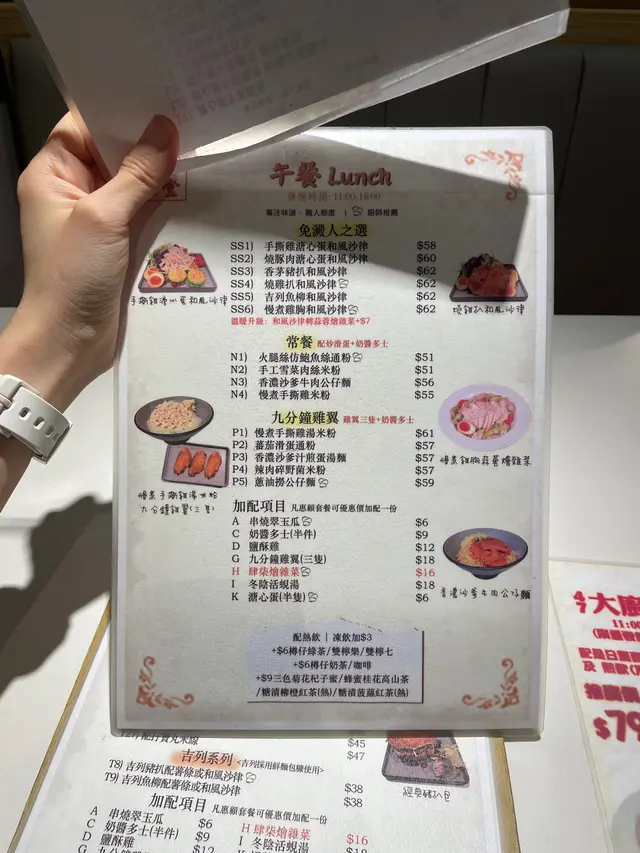 堂
午餐 Lunch
供應時間: 11:00-18:00
專注味道 · 職人態度 | 廚師推薦
免澱人之選
SS1) 手撕雞溏心蛋和風沙律 $58
SS2) 燒豚肉溏心蛋和風沙律 $60
SS3) 香茅豬扒和風沙律 $62
SS4) 燒雞扒和風沙律 $62
SS5) 吉列魚柳和風沙律 $62
SS6) 慢煮雞胸和風沙律 $62
溫暖升級: 和風沙律轉蒜蓉燴雜菜+$7
手撕雞溏心蛋和風沙律
燒雞扒和風沙律
常餐 配炒滑蛋+奶醬多士
N1) 火腿絲仿鮑魚絲通粉 $51
N2) 手工雪菜肉絲米粉 $51
N3) 香濃沙爹牛肉公仔麵 $56
N4) 慢煮手撕雞米粉 $55
九分鐘雞翼 雞翼三隻+奶醬多士
P1) 慢煮手撕雞湯米粉 $61
P2) 蕃茄滑蛋通粉 $57
P3) 香濃沙爹汁煎蛋湯麵 $57
P4) 辣肉碎野菌米粉 $57
P5) 蔥油撈公仔麵 $59
慢煮手撕雞湯米粉
九分鐘雞翼(三隻)
慢煮雞胸蒜蓉燴雜菜
加配項目 凡惠顧套餐可優惠價加配一份
A 串燒翠玉瓜 $6
C 奶醬多士(半件) $9
D 鹽酥雞 $12
G 九分鐘雞翼(三隻) $18
H 肆柒燴雜菜 $16
I 冬陰活蜆湯 $18
K 溏心蛋(半隻) $6
香濃沙爹牛肉公仔麵
配熱飲 | 凍飲加$3
+$6樽仔綠茶/雙檸樂/雙檸七
+$6樽仔奶茶/咖啡
+$9三色菊花杞子蜜/蜂蜜桂花高山茶
/糖漬柳橙紅茶(熱)/糖漬菠蘿紅茶(熱)
$45
吉列系列 <吉列採用鮮麵包糠使用> $47
T8) 吉列豬扒配薯條或和風沙律 $38
T9) 吉列魚柳配薯條或和風沙律 $38
經典豬扒包
加配項目 凡惠顧套餐可優惠價加配一份
A 串燒翠玉瓜 $6
C 奶醬多士(半件) $9
D 鹽酥雞 $12
G 九分鐘雞翼
H 肆柒燴雜菜 $16
I 冬陰活蜆湯 $18
47大廚
11:00
$79